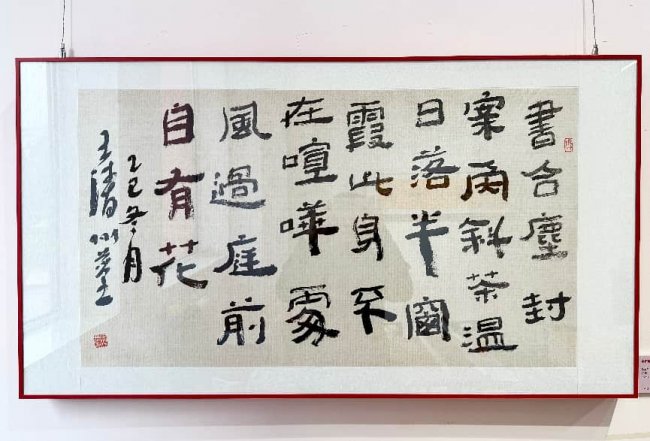 書合塵封
案角斜茶溫
日落半窗
霞此身不
在喧嘩處
風過庭前
自有花
乙巳冬月
王